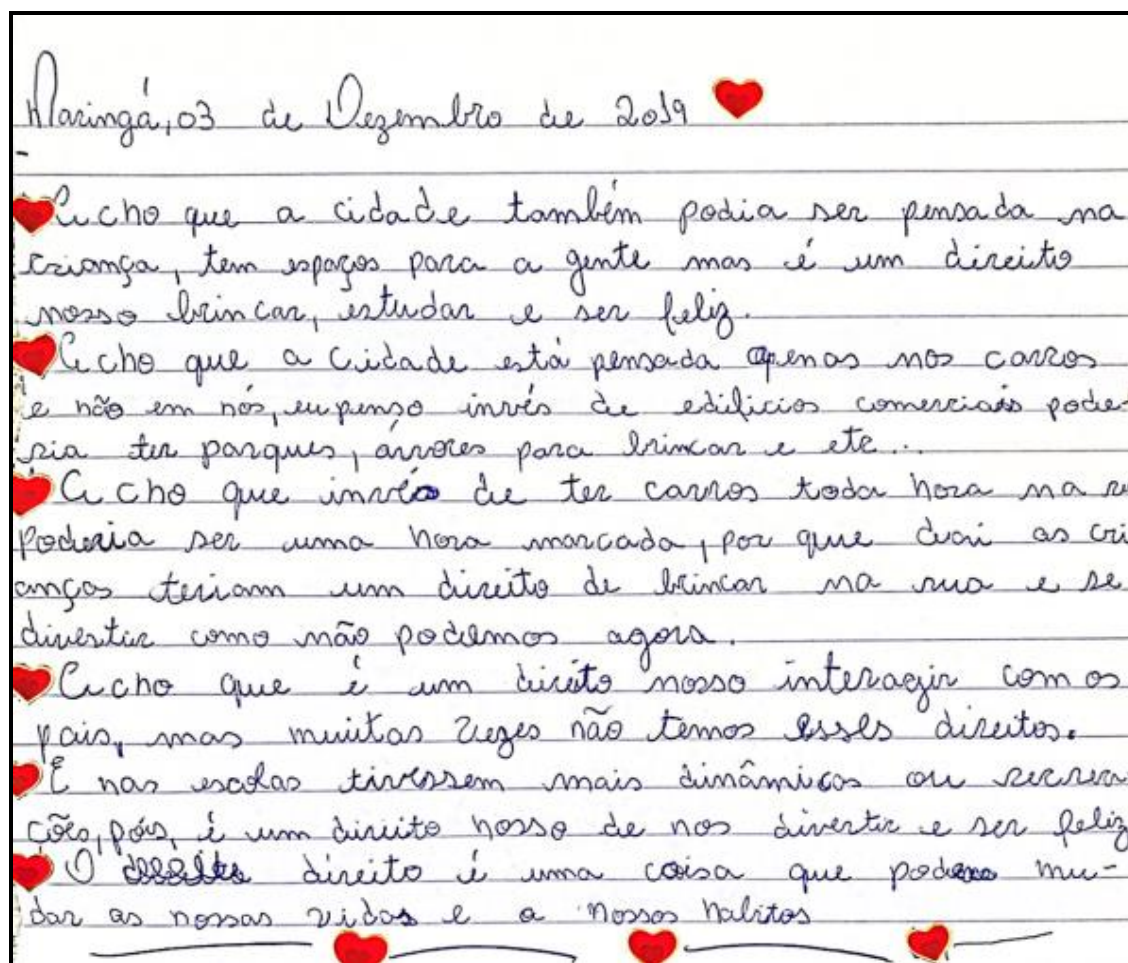 Maringá, 03 de Dezembro de 2019
Acho que a cidade também podia ser pensada na
criança, tem espaços para a gente mas é um direito
nosso brincar, estudar e ser feliz.
Acho que a cidade está pensada apenas nos carros
e não em nós, eu penso invés de edificios comerciais pode-
ria ter parques, árvores para brincar e etc...
Acho que invés de ter carros toda hora na
Poderia ser uma hora marcada, por que as cri
anças teriam um direito de brincar na rua e se
divertir como não podemos agora.
Acho que é um direito nosso interagir com os
pais, mas muitas vezes não temos esses direitos.
E nas escolas tivessem mais dinâmicas ou recrea
ções, póis, é um direito nosso de nos divertir e ser feliz
O direito é uma coisa que mu-
dar as nossas vidas e a nossos habitos